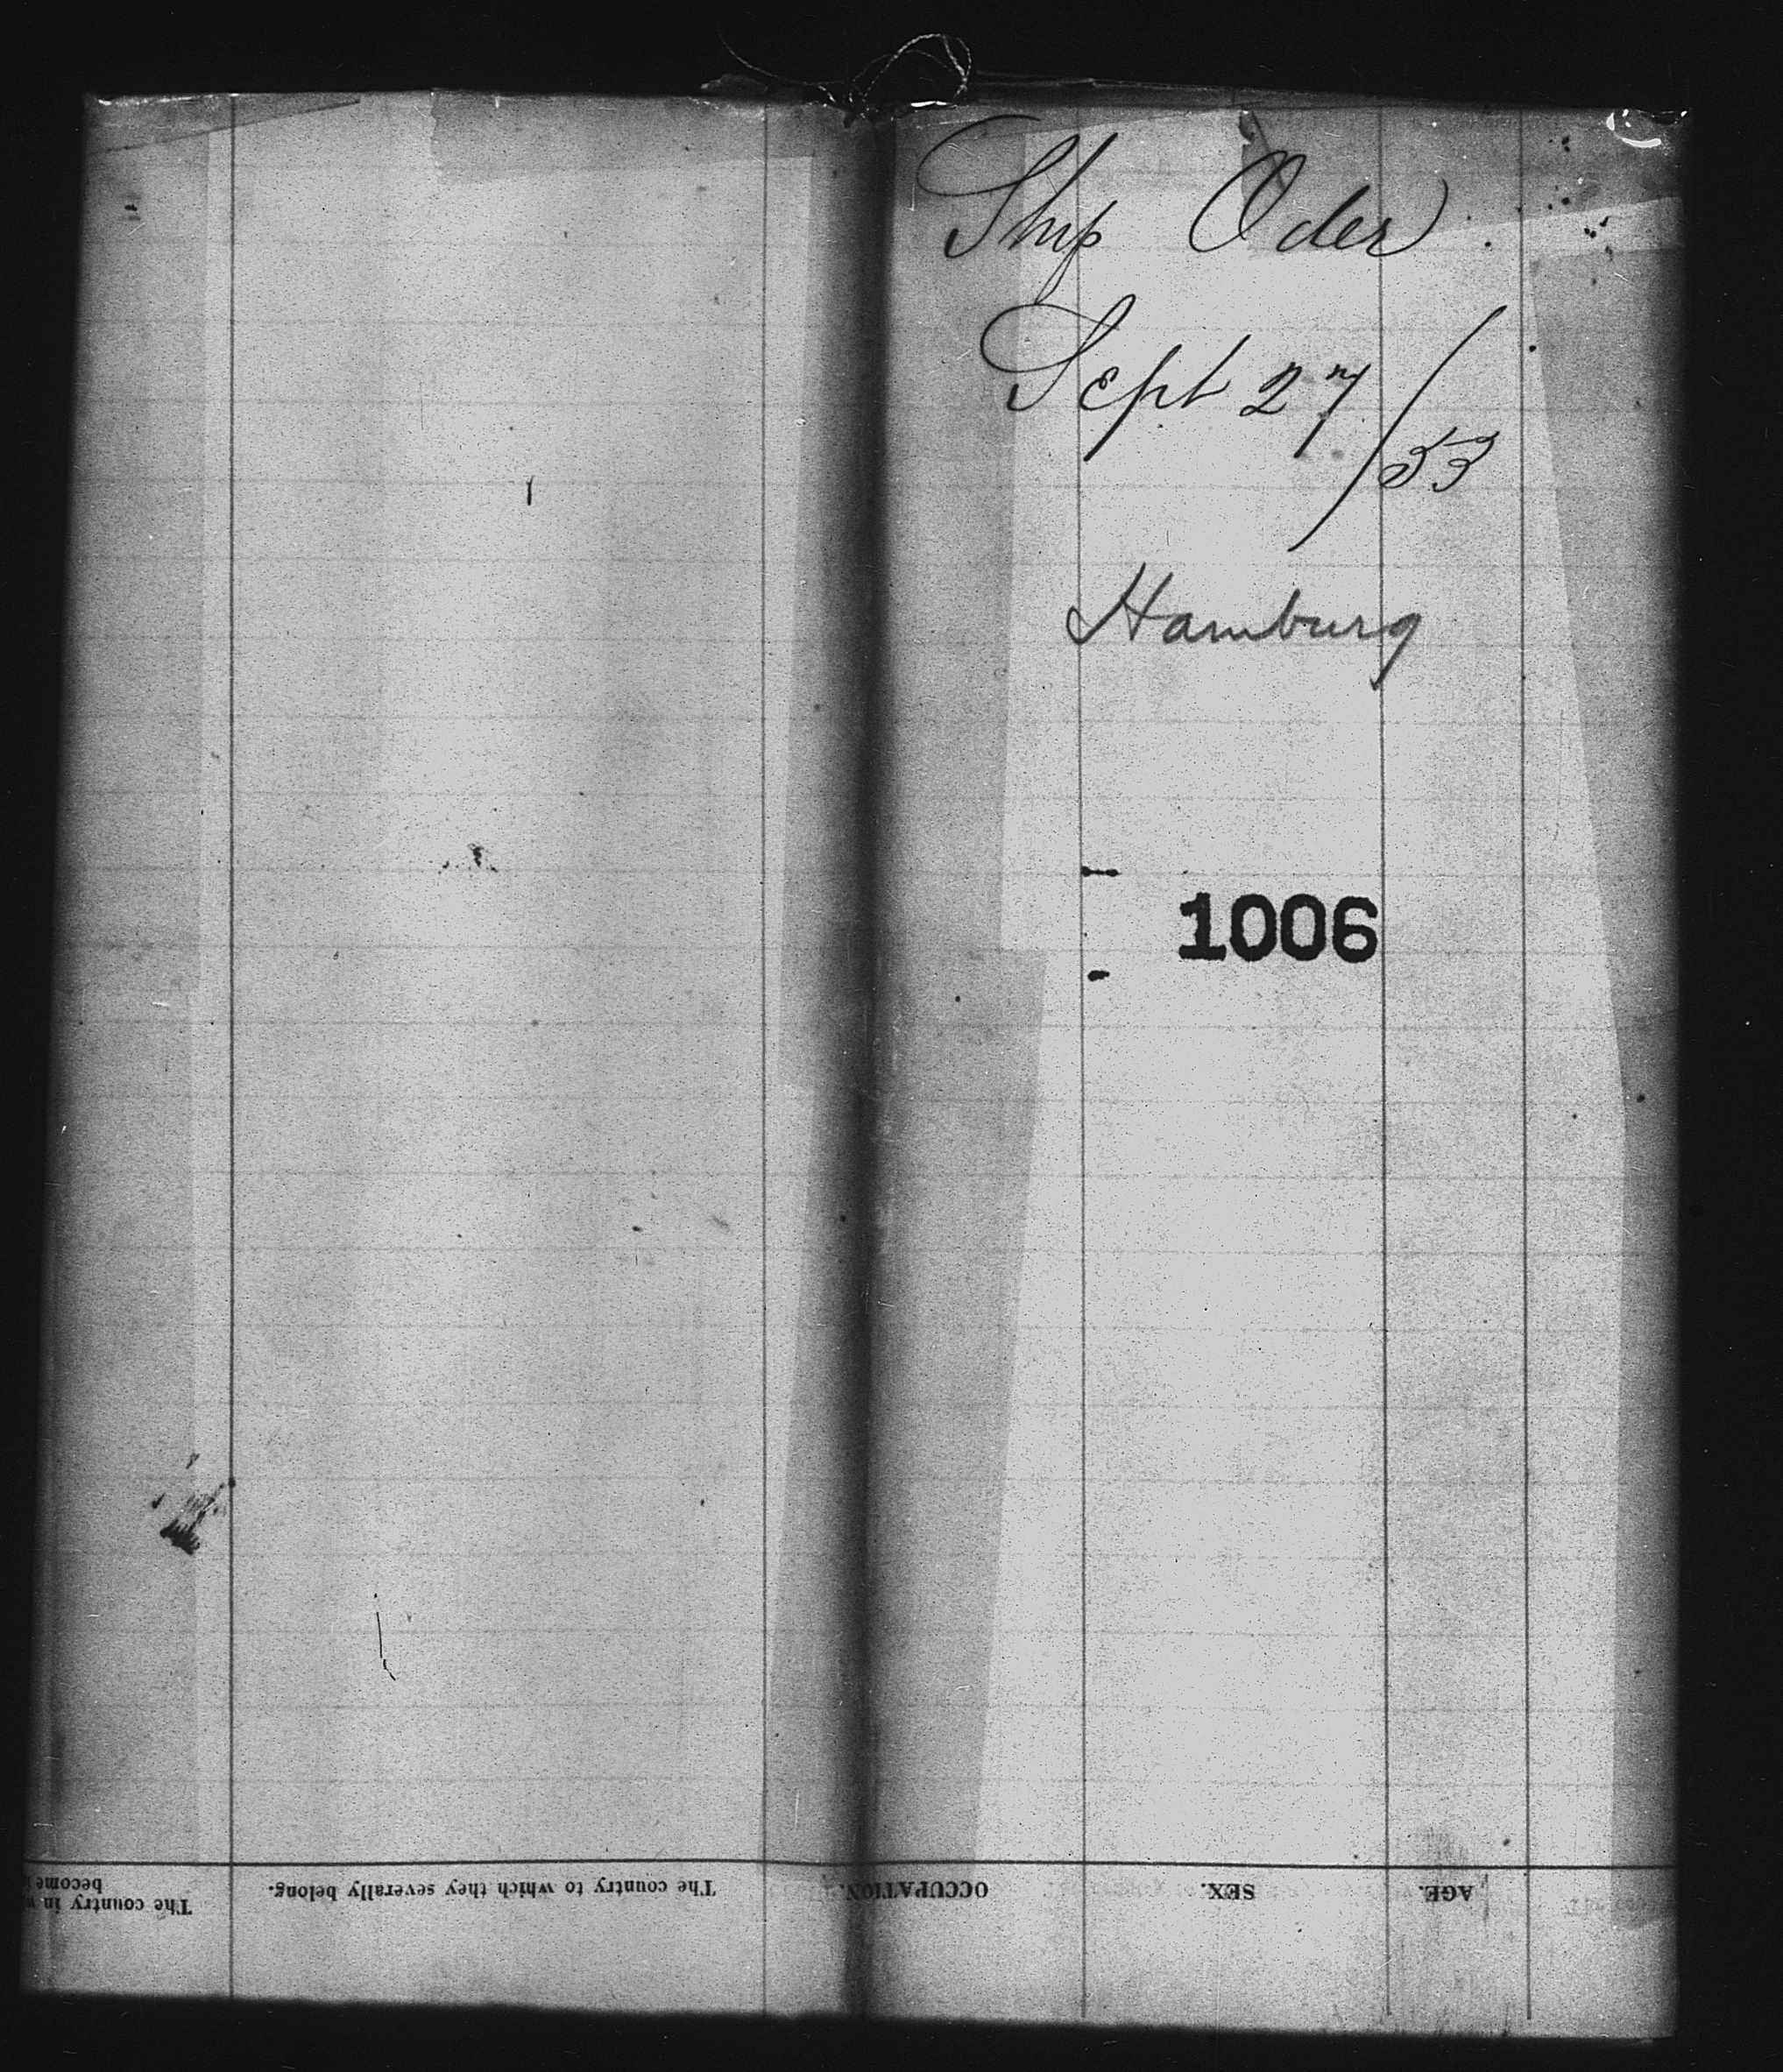 Ship Oder
Sept 27/53
Hamburg
1006
AGE.
SEX.
OCCUPATION.
The country to which they severally belong.
The country in
become